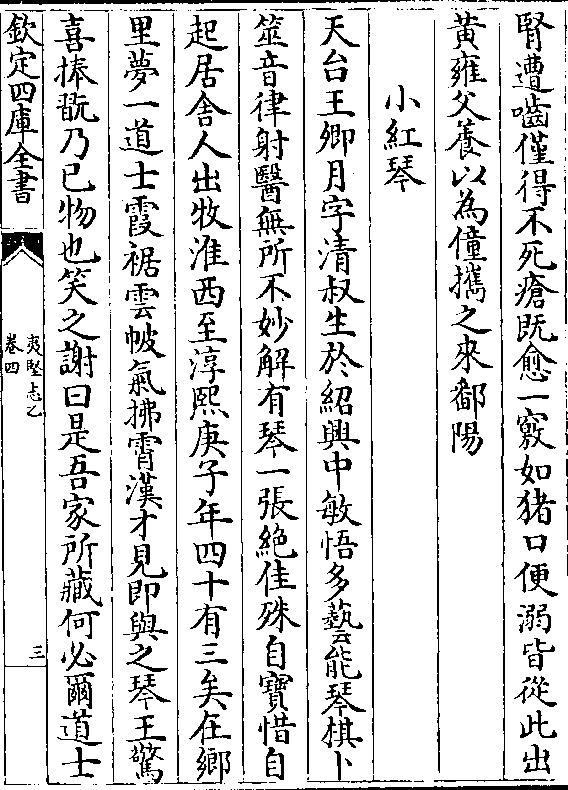 腎遭嚙僅得不死瘡既愈一竅如猪口便溺皆從此出
黃雍父養以為僮攜之來鄱陽
小紅琴
天台王卿月字清叔生於紹興中敏悟多藝能琴棋卜
筮音律射醫無所不妙解有琴一張絶佳殊自寶惜自
起居舍人出牧淮西至淳熙庚子年四十有三矣在鄉
里夢一道士霞裾雲帔氣拂霄漢才見即與之琴王驚
喜捧翫乃已物也笑之謝曰是吾家所藏何必爾道士
欽定四庫全書
夷堅志乙
卷四
三